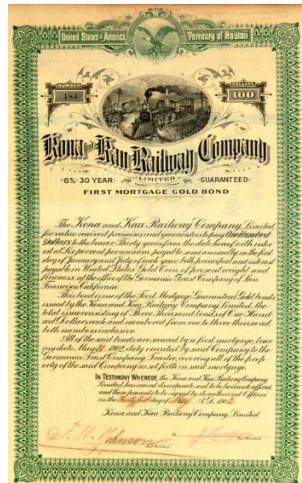 United States of America, Territory of Hawaii
NUMBER DOLLARS
184 100
Kona and Kau Railway Company
LIMITED
6% 30 YEAR GUARANTEED
FIRST MORTGAGE GOLD BOND
The Kona and Kau Railway Company, Limited
for value received promises and guarantees to pay One Hundred
Dollars to the bearer Thirty years from the date hereof with inter-
est at six per cent per annum, payable semi-annually on the first
day of January and July of each year, both principal and interest
payable in United States Gold Coin of present weight and
fineness at the office of the Germania Trust Company of San
Francisco, California.
This bond is one of the First Mortgage Guaranteed Gold bonds
issued by the Kona and Kau Railway Company, Limited, the
total issue consisting of Three Thousand bonds of One Hund-
red Dollars each and numbered from one to three thousand
both numbers inclusive.
All of the said bonds are secured by a first mortgage, bear-
ing date, May 1902, duly executed by said Company to the
Germania Trust Company Trustee, covering all of the prop-
erty of the said Company as set forth in said mortgage.
IN TESTIMONY WHEREOF, the Kona and Kau Railway Company
Limited, has caused its corporate seal to be hereunto affixed
and these presents to be signed by its authorized Officers
on the day of May A.D. 1902
Kona and Kau Railway Company, Limited
Johnson